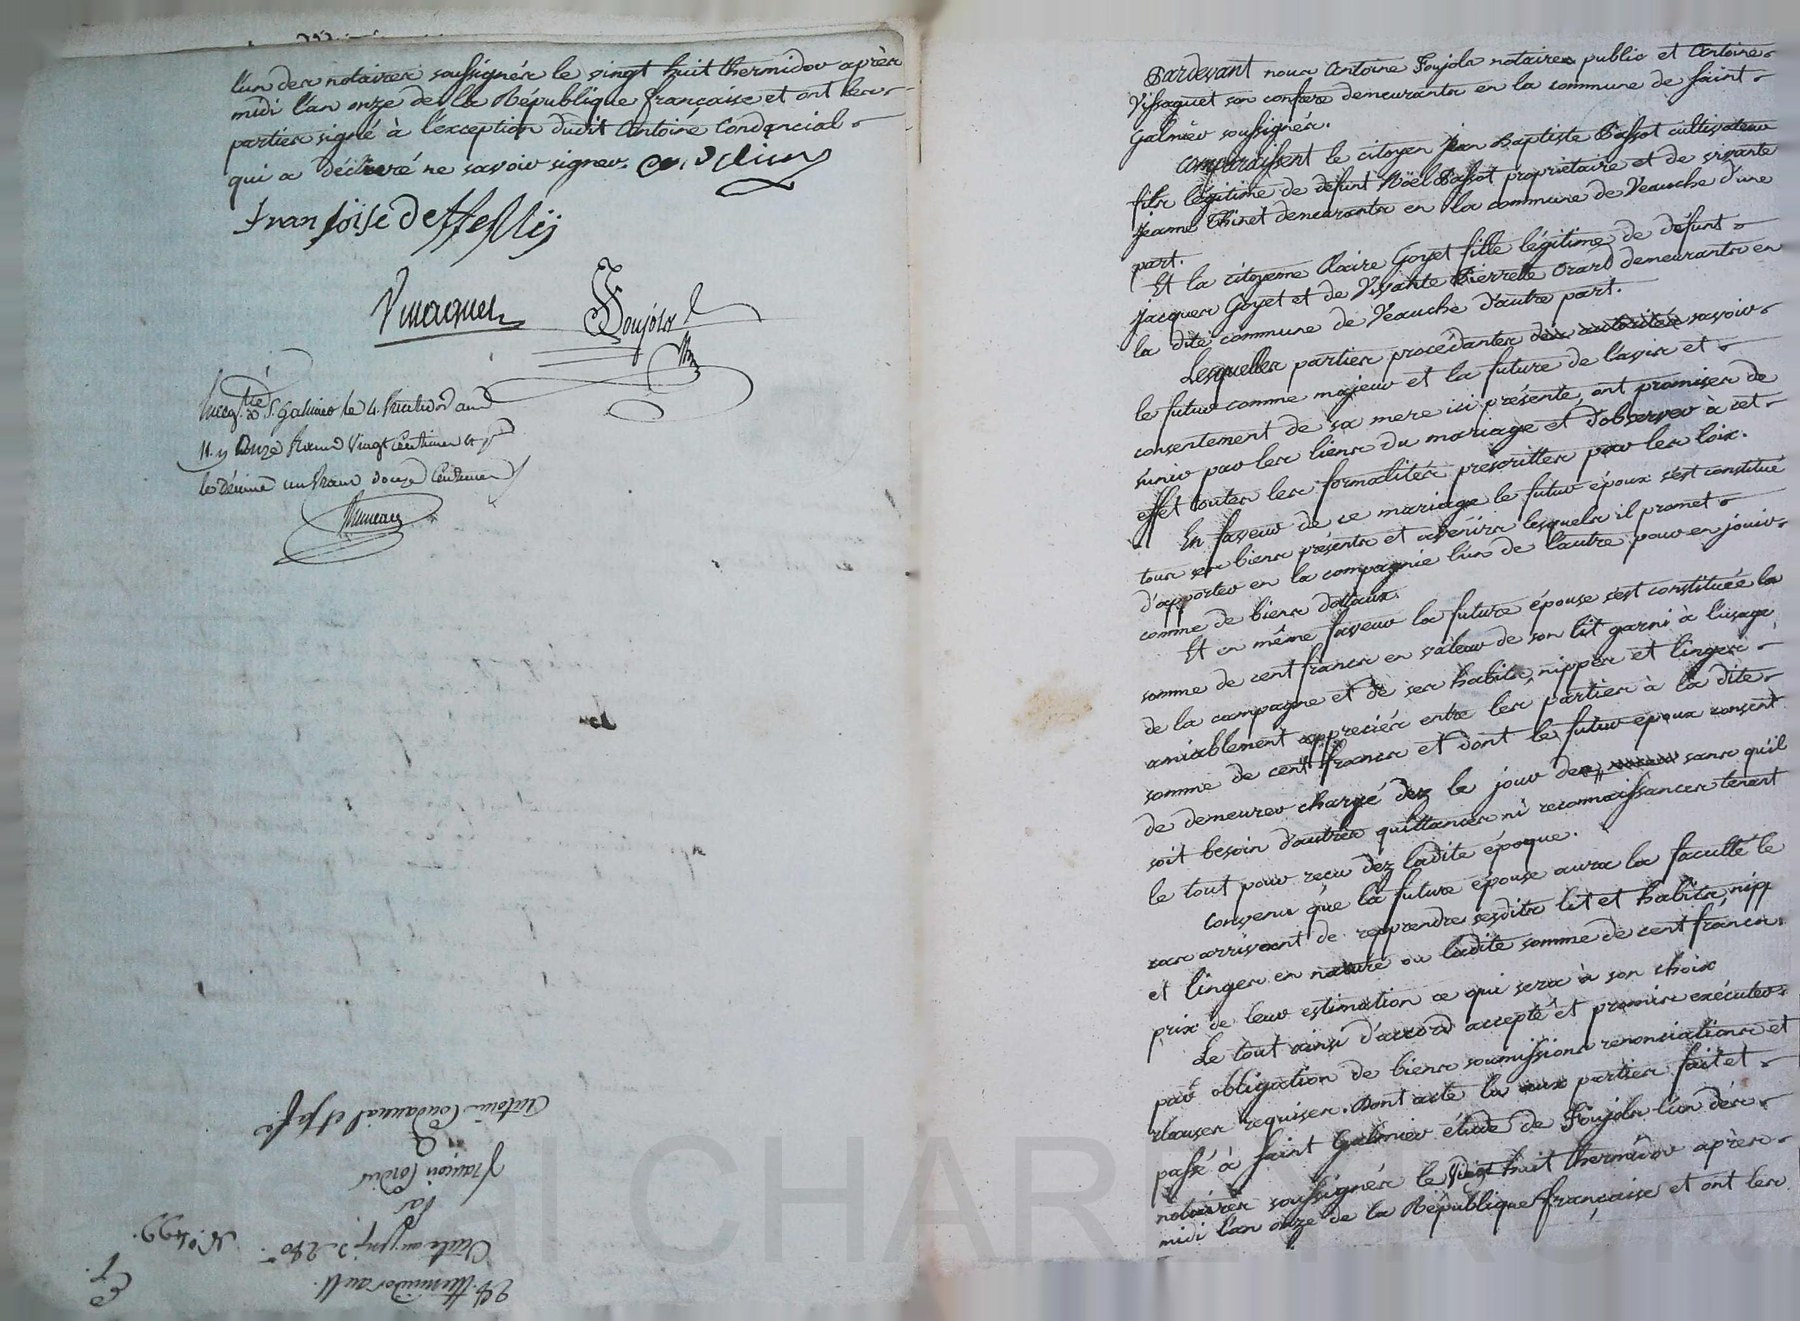 l'un des notaires soussignés le vingt huit thermidor après
midi l'an onze de la République française et ont les
parties signé à l'exception dudit Antoine Condancial
qui a déclaré ne savoir signer.
Fransoise deffeslÿ
Vissaguet Foujols
St Galmier le 4. fructidor an
11. Onze francs Vingt Centimes
le décime un franc douze Centimes
Pardevant nous Antoine Foujols notaire public et Antoine
Vissaguet son confrere demeurants en la commune de Saint
Galmier soussignés.
Comparaissent le citoyen Jean Baptiste Bassot cultivateur
fils légitime de défunt Nöel Bassot propriétaire et de vivante
Jeanne Thinet demeurants en la commune de Veauche d'une
part.
Et la citoyenne Claire Goyet fille légitime de défunt
Jacques Goyet et de Vivante Pierrette Orard demeurants en
la dite commune de Veauche d'autre part.
Lesquelles parties procédantes des autorités savoir
le futur comme majeur et la future de l'avis et
consentement de sa mere ici présente, ont promises de
s'unir par les liens du mariage et d'observer à cet
effet toutes les formalités prescrittes par les loix.
En faveur de ce mariage le futur époux s'est constitué
tous ses biens présents et avenirs lesquels il promet
d'apporter en la compagnie l'un de l'autre pour en jouir
comme de biens dottaux.
Et en même faveur la future épouse s'est constituée la
somme de cent francs en valeur de son lit garni à l'usage
de la campagne et de ses habits, nippes et linges
amiablement appreciés entre les parties à la dite
somme de cent francs et dont le futur époux consent
de demeurer chargé dez le jour des sans qu'il
soit besoin d'autres quittances ni reconnaissances tenant
le tout pour reçu dez ladite époque.
Convenu que la future épouse aura la faculté le
cas arrivant de reprendre sesdits lit et habits, nip
et linges en nature ou ladite somme de cent francs
prix de leur estimation ce qui sera à son choix
Le tout ainsi d'accord accepté et promis exécuter
par obligation de biens soumissions renonciations et
clauses requises. Dont acte la aux parties fait et
passé à Saint Galmier étude de Foujols l'un des
notaires soussignés le vingt huit thermidor après
midi l'an onze de la République française et ont les
28. thermidor an 11.
N.° 499.
par
François Cordier
&
Antoine Condancial
CHAREYRON